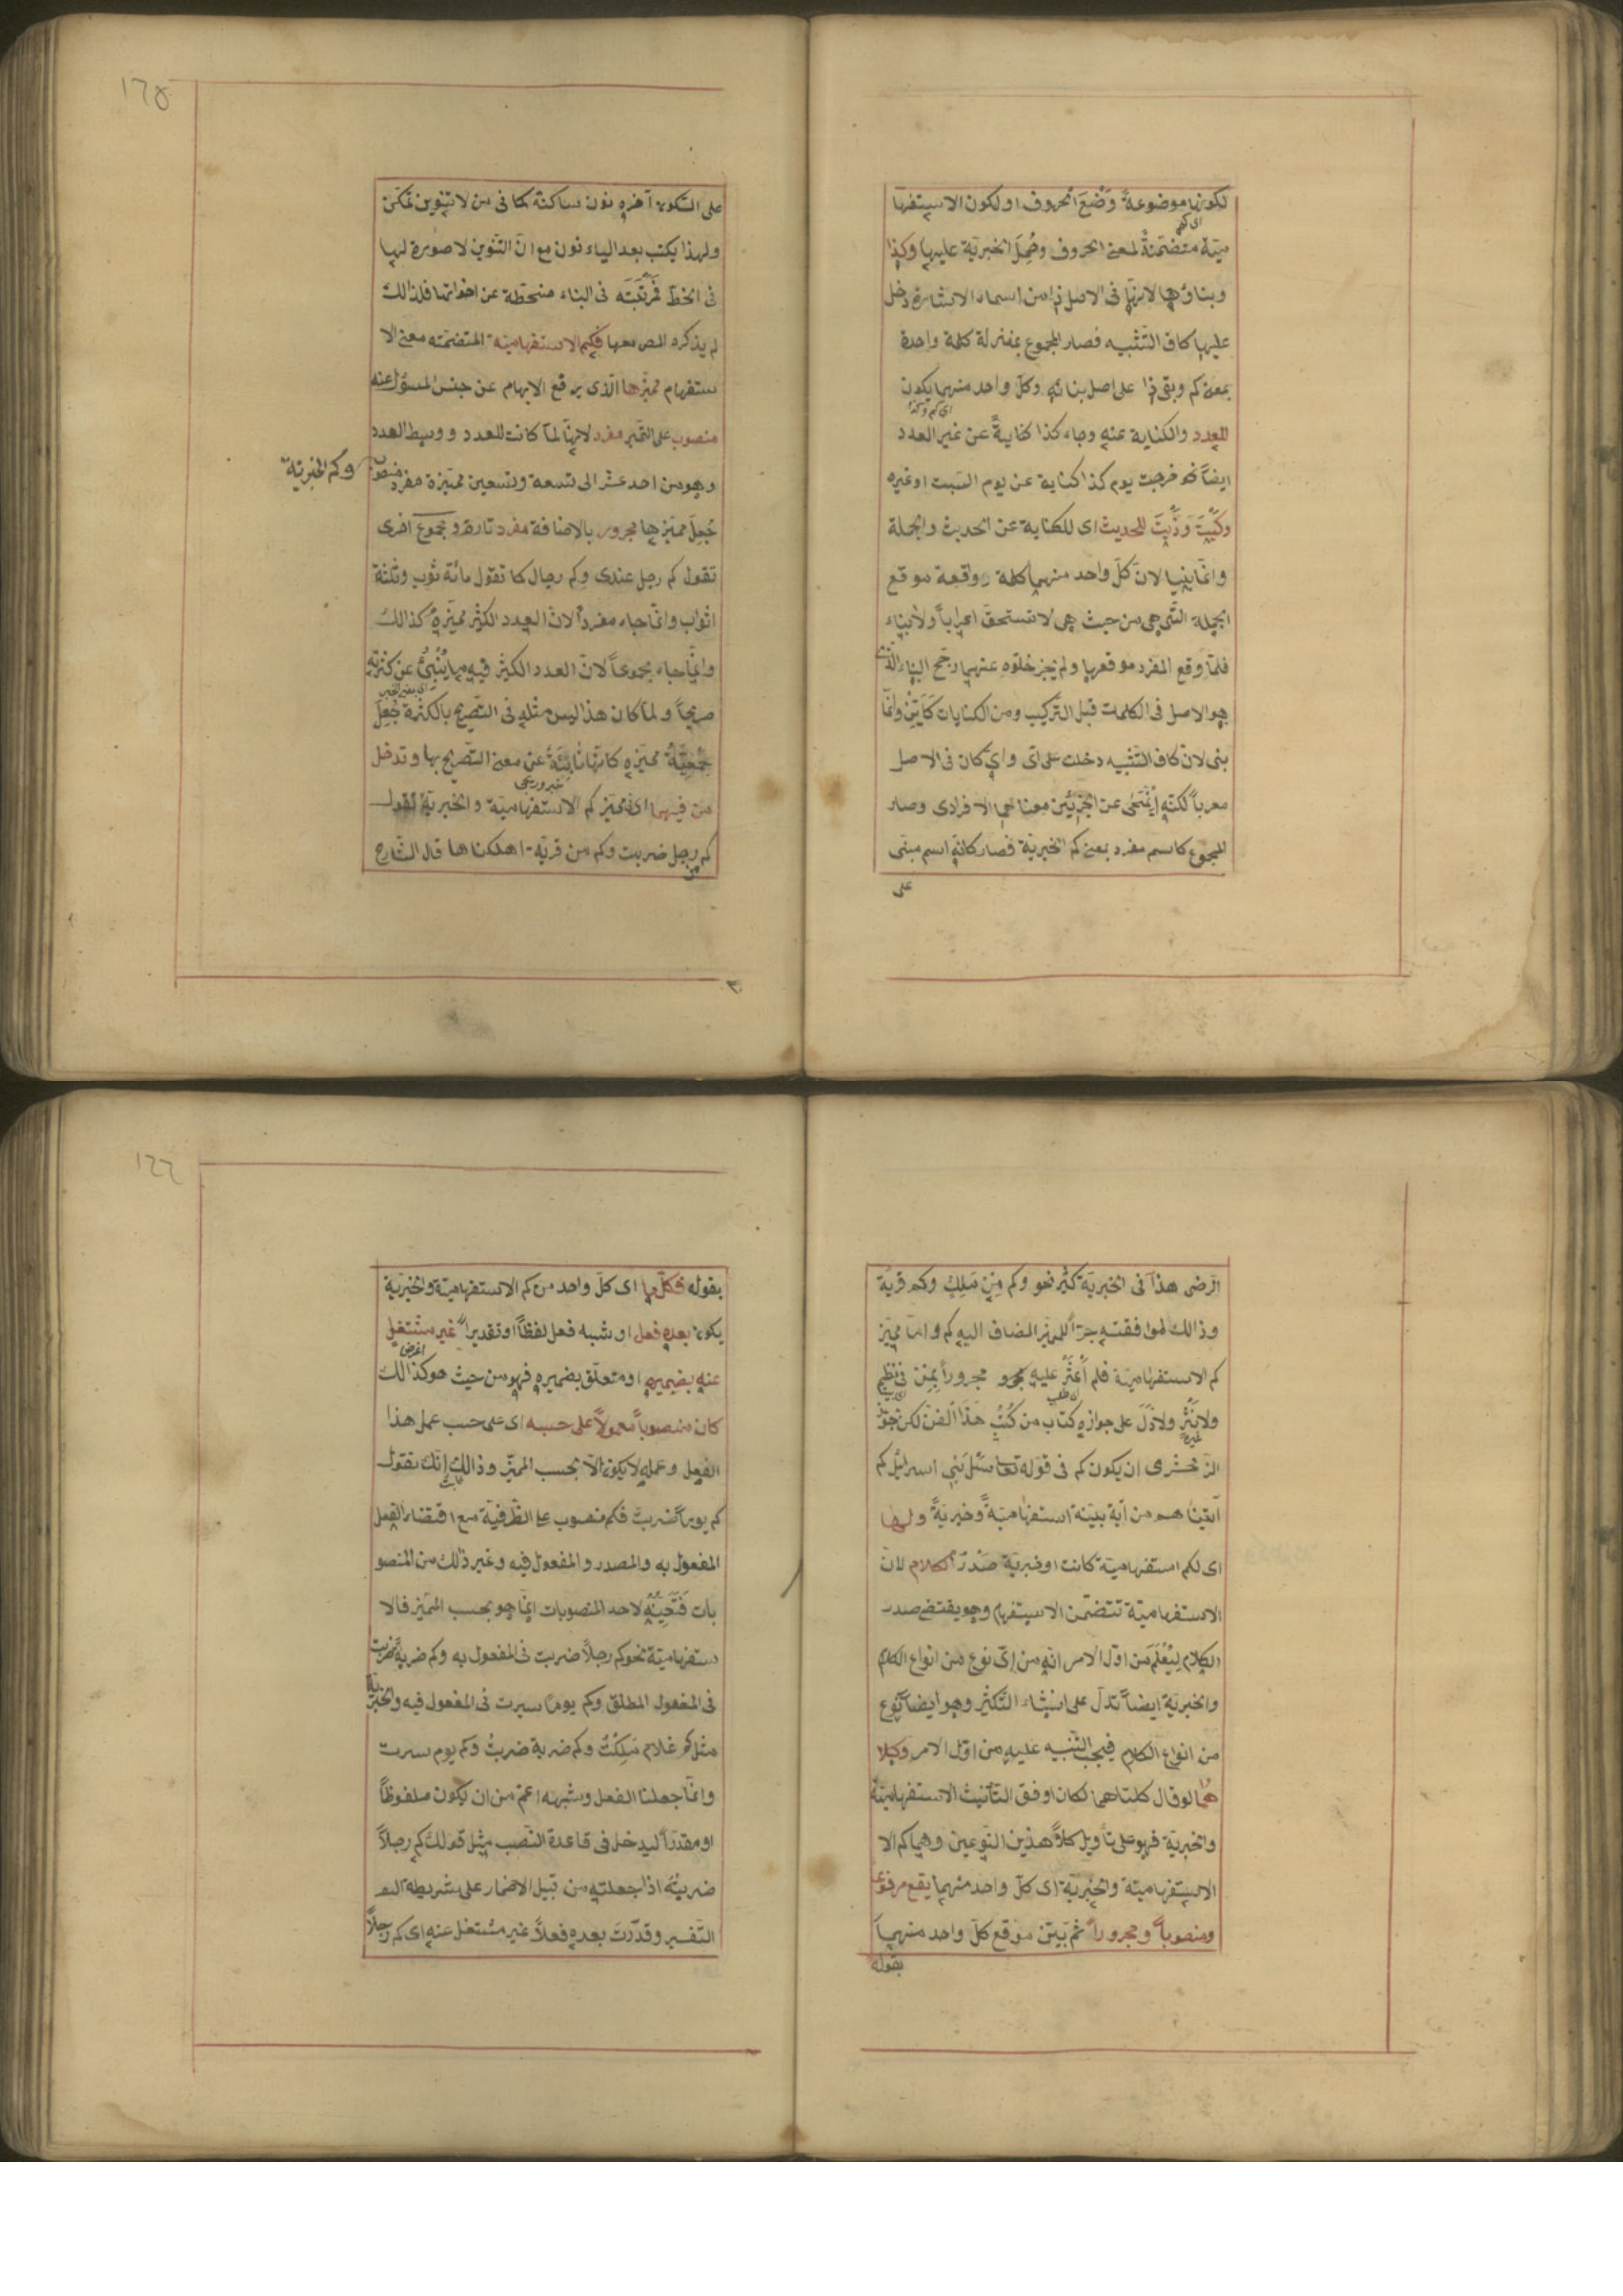 لكونها موضوعة وَضْعَ الحروف او لكون الاستفها
اى كم
مية متضمنةً لمعنى الحروف وحُمِلَ الخبرية عليها وكذا
وبناؤها لانها فى الاصل ذا من اسماء الاشارة دخل
عليها كاف التشبيه فصار المجموع بمنزلة كلمة واحدة
بمعنى كم وبقى ذا على اصل بنائه وكل واحد منهما يكون
اى كم وكذا
للعدد والكناية عنه وجاء كذا كنايةً عن غير العدد
ايضاً نحو خرجت يوم كذا كناية عن يوم السبت او غيره
وكَيْتَ وذَيْتَ للحديث اى للكناية عن الحديث والجملة
وانما بنيا لان كل واحد منهما كلمة واقعة موقع
الجملة التى هى من حيث هى لا تستحق اعراباً ولا بناء
فلما وقع المفرد موقعها ولم يجز خلوه عنهما رجح البناء الذى
هو الاصل فى الكلمات قبل التركيب ومن الكنايات كَاَيِّنْ وانما
بنى لان كاف التشبيه دخلت على اى واىٌ كان فى الاصل
معرباً لكنه اِنْمَحٰى عن الجزئين معناهما الافرادى وصار
المجموع كاسم مفرد بمعنى كم الخبرية فصار كانه اسم مبنى
على
١٦٥
على السكون آخره نون ساكنة كما فى من لا تنوين تمكن
ولهذا يكتب بعد الياء نون مع انّ التنوين لا صورة لها
فى الخط فمرتبته فى البناء منحطة عن اخواتها فلذالك
لم يذكره المص معها فكم الاستفهامية المتضمنه معنى الا
ستفهام مميزها الذى يرفع الابهام عن جنس المسؤل عنه
منصوب على التميز مفرد لانها لما كانت للعدد ووسط العدد
وهو من احد عشر الى تسعة وتسعين مميزة مفرد منصوب
وكم الخبرية
جُعِلَ مميزها مجرور بالاضافة مفرد تارة ومجموع اخرى
تقول كم رجل عندى وكم رجال كما تقول مائة ثوب وثلثة
اثواب وانما جاء مفرداً لان العدد الكثير مميزه كذالك
وانما جاء مجموعاً لان العدد الكثير فيه ما يُنْبِئُ عن كثرته
صريحاً ولما كان هذا ليس مثله فى التصريح بالكثرة جُعِلَ
جمعيّةُ مميزه كانها نائبة عن معنى التصريح بها وتدخل
من فيهما اى فى مميز كم الاستفهامية والخبرية تقول
كم من رجل ضربت وكم من قرية اهلكناها قال الشارح
الرضى هذا فى الخبرية كثير نحو وكم مِنْ مَلَكٍ وكم قرية
وذالك لموافقته جراً للميز المضاف اليه كم واما مميز
كم الاستفهامية فلم اَعْثَرْ عليه مجرو مجروراً بمن فى نظم
ولا نثر ولا دلّ على جوازه كتاب من كُتُبِ هذا الفن لكن جوّز
الزمخشرى ان يكون كم فى قوله تعا سَلْ بَنِي اسرائل كم
آتينا هم من آية بينة استفهاميةً وخبريةً ولها
اى لكم استفهامية كانت او خبرية صَدْرُ الكلام لان
الاستفهامية تتضمن الاستفهام وهو يقتضى صدر
الكلام لِيُعْلَمَ من اول الامر انه من اىّ نوع من انواع الكلام
والخبرية ايضاً تدل على انشاء التكثير وهو ايضاً نوع
من انواع الكلام فيجب التنبيه عليه من اول الامر وكلا
هما لو قال كلتاهما لكان اوفق لتأنيث الاستفهامية
والخبرية فهو على تأويل كلا هذين النوعين وهما كم الا
الاستفهامية والخبرية اى كل واحد منهما يقع مرفوعا
ومنصوباً ومجروراً ثم بيّن موقع كل واحد منهما
بقوله
١٦٦
بقوله فكل ما اى كل واحد من كم الاستفهامية والخبرية
يكون بعده فعل او شبه فعل لفظاً او تقديراً غير مشتغل
عنه بضميره او متعلق بضميره فهو من حيث هو كذالك
كان منصوباً معمولاً على حسبه اى على حسب عمل هذا
الفعل وعمله لا يكون الا بحسب المميز وذالك انك تقول
كم يوماً ضربت فكم منصوب على الظرفية مع اقتضاء الفعل
المفعول به والمصدر والمفعول فيه وغير ذلك من المنصو
بات فتعيينه لاحد المنصوبات انما هو بحسب المميز فالا
ستفهامية نحو كم رجلاً ضربت فى المفعول به وكم ضربةً ضربت
فى المفعول المطلق وكم يوماً سرت فى المفعول فيه والخبرية
مثل كم غلام مَلَكْتُ وكم ضربة ضربتُ وكم يوم سرت
وانما جعلنا الفعل وشبهه اعم من ان يكون ملفوظاً
او مقدراً ليدخل فى قاعدة النصب مثل قولك كم رجلاً
ضربته اذا جعلته من قبيل الاضمار على شريطة التفـ
التفسير وقدّرت بعده فعلاً غير مشتغل عنه اى كم رجلاً